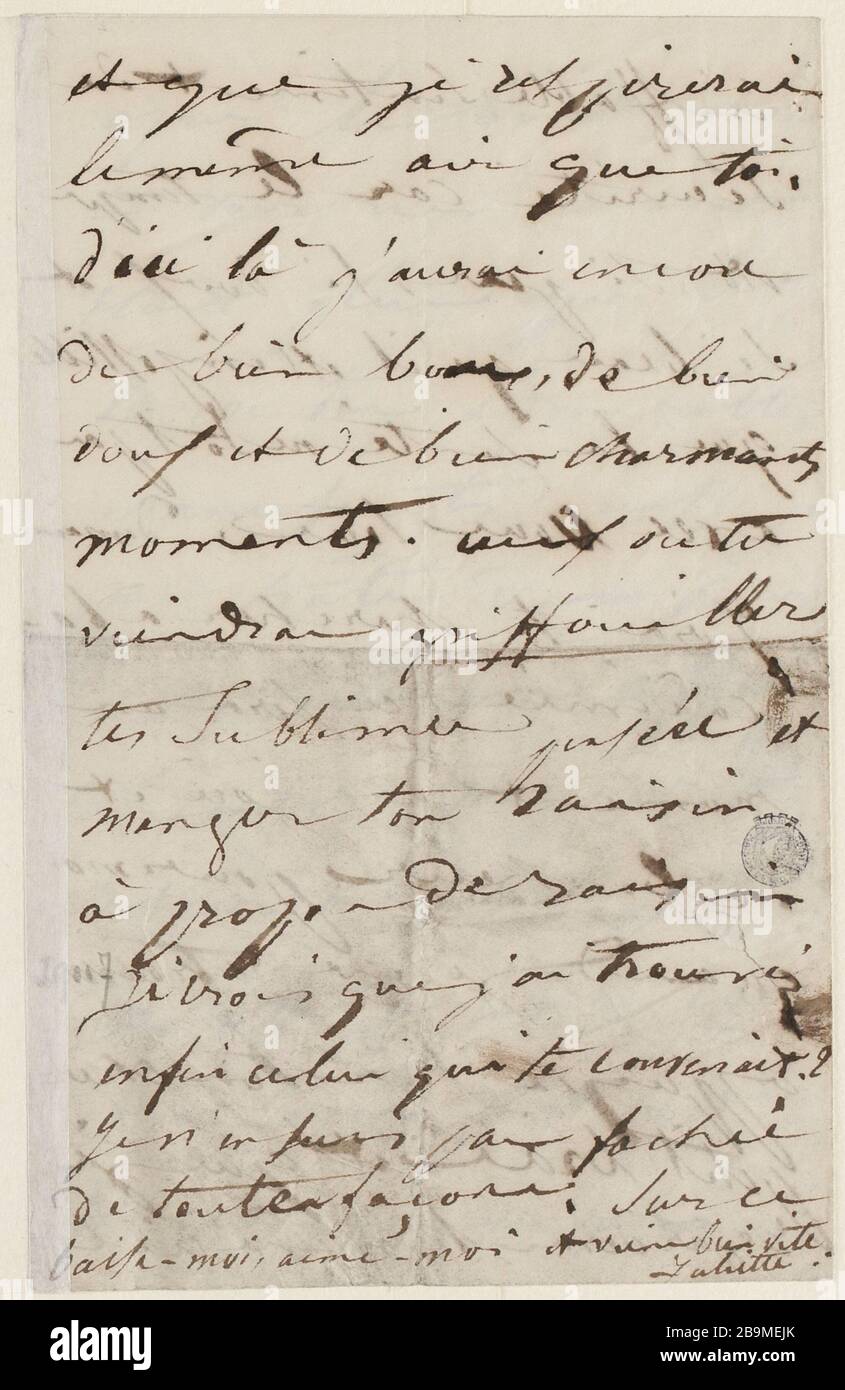 et que je respirerai
le même air que toi.
d'ici là j'aurai encore
de bien bons, de bien
doux et de bien charmants
moments. ceux où tu
viendras griffouiller
tes sublimes pensées et
manger ton raisin
à propos de raisin
je crois que j'ai trouvé
enfin celui qui te convenait.
Je n'en suis pas fachée
de toutes façons. Sur ce
baise-moi, aime-moi et viens bien vite.
Juliette.
alamy
Image ID: 2B9MEJK
www.alamy.com